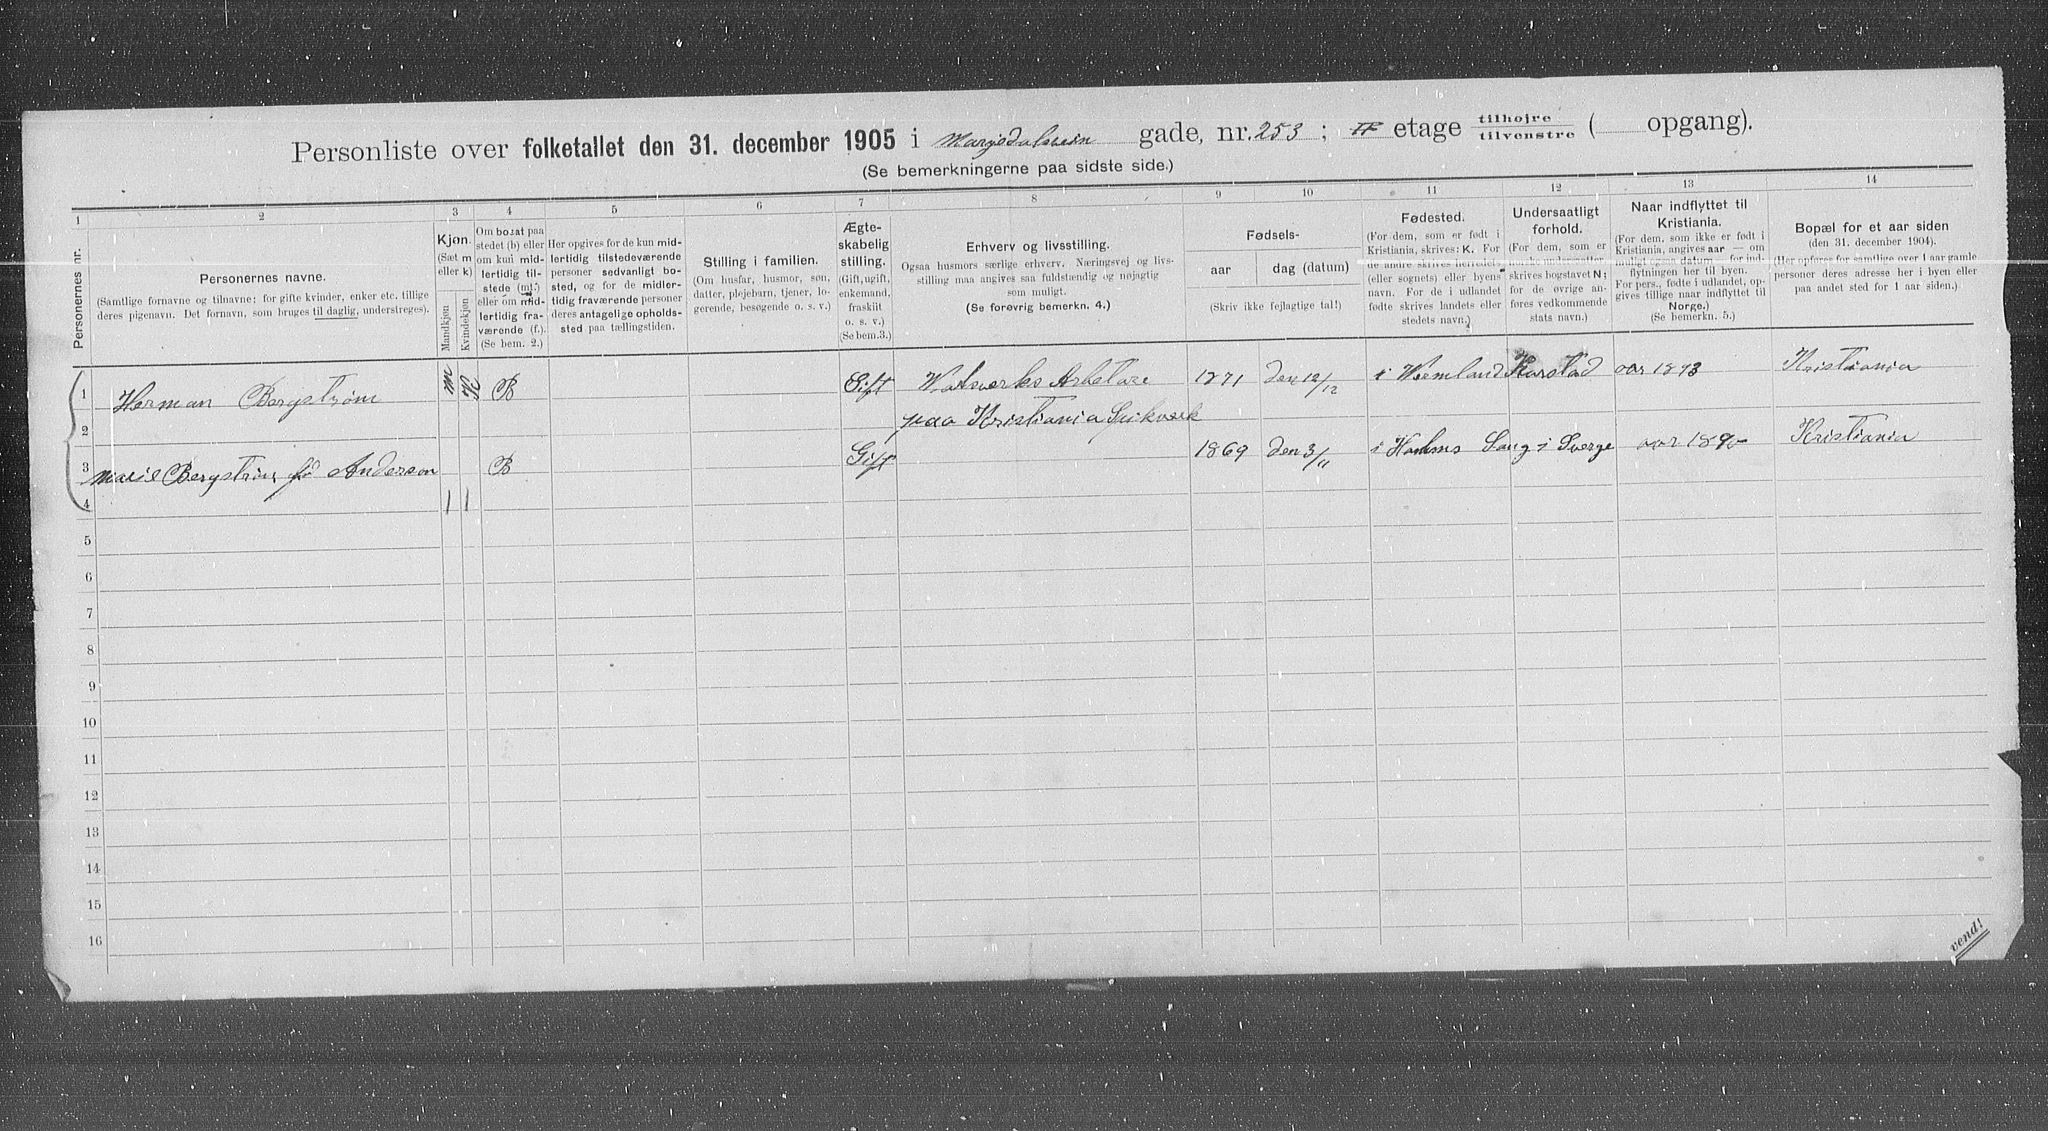 Personliste over folketallet den 31. december 1905 i Margedalsvein gade, nr. 253 ; II etage tilhøjre / tilvenstre ( opgang).
(Se bemerkningerne paa sidste side.)
1 2 3 4 5 6 7 8 9 10 11 12 13 14
Personernes nr.
Personernes navne.
(Samtlige fornavne og tilnavne; for gifte kvinder, enker etc. tillige
deres pigenavn. Det fornavn, som bruges til daglig, understreges).
Kjøn.
(Sæt m
eller k)
Mandkjøn
Kvindekjøn
Om bosat paa
stedet (b) eller
om kun mid-
lertidig til-
stede (mt.)
eller om mid-
lertidig fra-
værende (f.).
(Se bem. 2.)
Her opgives for de kun mid-
lertidig tilstedeværende
personer sedvanligt bo-
sted, og for de midler-
tidig fraværende personer
deres antagelige opholds-
sted paa tællingstiden.
Stilling i familien.
(Om husfar, husmor, søn,
datter, plejebarn, tjener, lo-
gerende, besøgende o. s. v.)
Ægte-
skabelig
stilling.
(Gift, ugift,
enkemand,
fraskilt
o. s. v.)
(Se bem.3.)
Erhverv og livsstilling.
Ogsaa husmors særlige erhverv. Næringsvej og livs-
stilling maa angives saa fuldstændig og nøjagtig
som muligt.
(Se forøvrig bemerkn. 4.)
Fødsels-
aar
dag (datum)
(Skriv ikke fejlagtige tal!)
Fødested.
(For dem, som er født i
Kristiania, skrives: K. For
de andre skrives herredets
(eller sognets) eller byens
navn. For de i udlandet
fødte skrives landets eller
stedets navn.)
Undersaatligt
forhold.
(For dem, som er
norske undersaatter,
skrives bogstavet N;
for de øvrige an-
føres vedkommende
stats navn.)
Naar indflyttet til
Kristiania.
(For dem, som ikke er født i
Kristiania, angives aar — om
muligt ogsaa datum — for ind-
flytningen her til byen.
For pers., fødte i udlandet, op-
gives tillige naar indflyttet til
Norge.)
(Se bemerkn. 5.)
Bopæl for et aar siden
(den 31. december 1904).
(Her opføres for samtlige over 1 aar gamle
personer deres adresse her i byen eller
paa andet sted for 1 aar siden.)
1 Herman Bergstrøm m K B Gift Walsverks Arbetare 1871 den 12/12 i Wermland Karstad aar 1893 Kristiania
2 paa Kristiania Spikverk
3 Marie Bergstrøm fø Anderson B Gift 1869 den 3/11 i Holms Sverge aar 1890 Kristiania
4 1 1
5
6
7
8
9
10
11
12
13
14
15
16
vend!